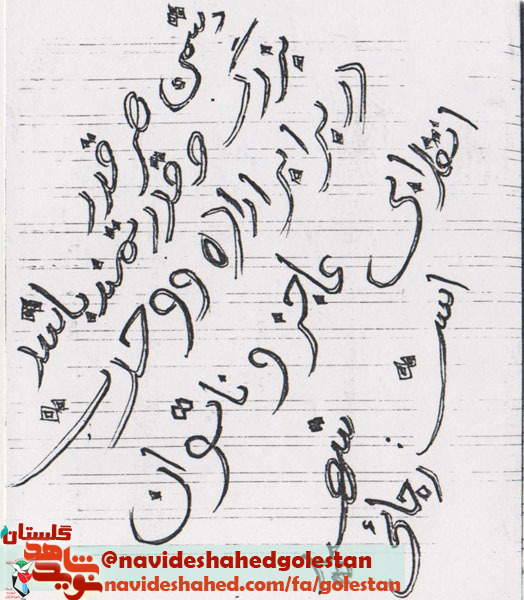 دشمن هر قدر
بزرگ و قدرتمند باشد
در برابر اراده و وحدت
انقلابی عاجز و ناتوان
است.
شهید رجائی
نوید شاهد گلستان
@navideshahedgolestan
navideshahed.com/fa/golestan